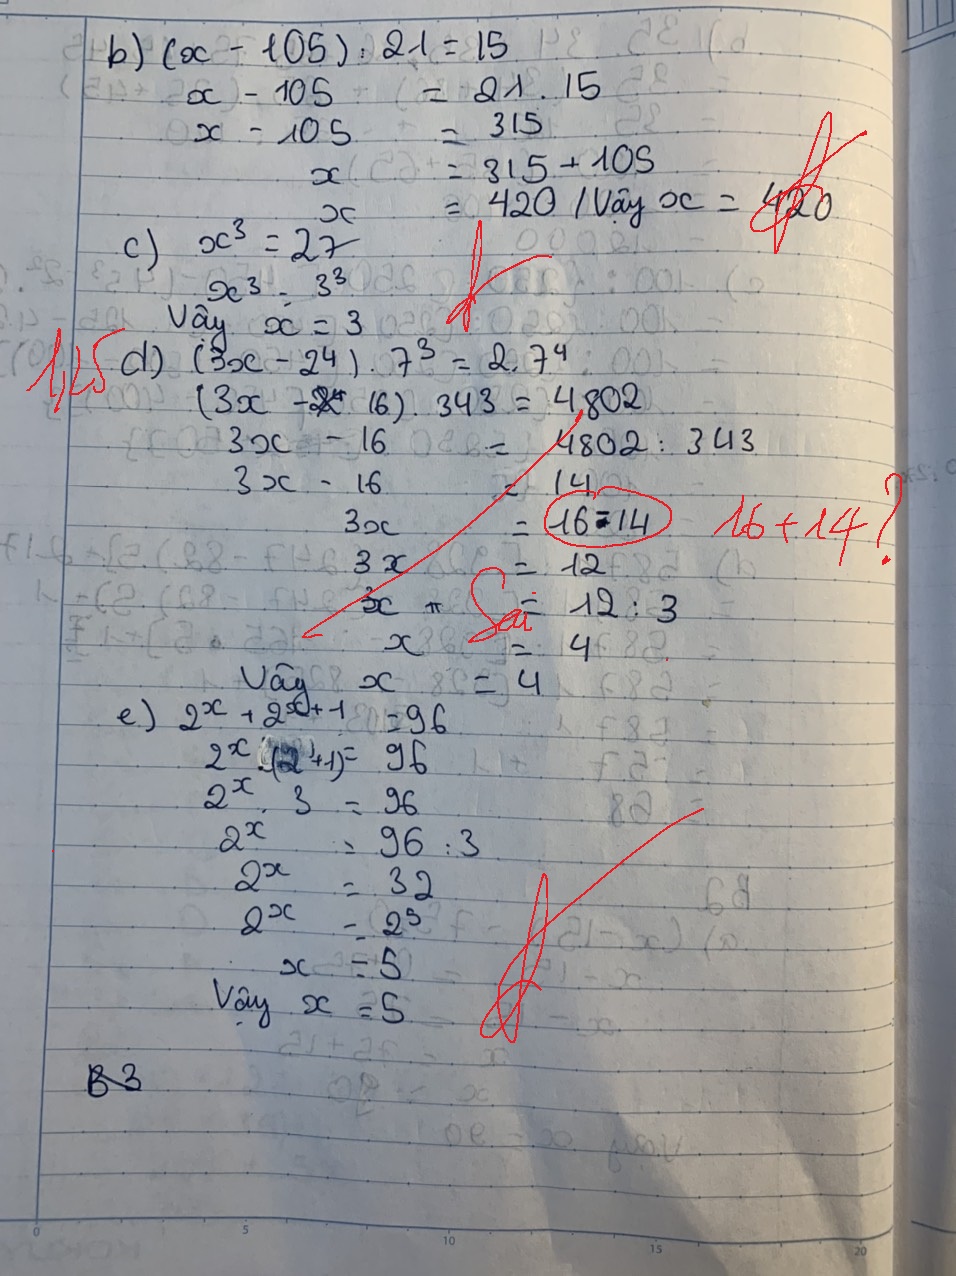 b) (x - 105) : 21 = 15
x - 105 = 21 . 15
x - 105 = 315
x = 315 + 105
x = 420 / Vậy x = 420
c) x³ = 27
x³ = 3³
Vậy x = 3
1,25 d) (3x - 2⁴) . 7³ = 2.7⁴
(3x - 16) . 343 = 4802
3x - 16 = 4802 : 343
3x - 16 = 14
3x = 16 - 14 16 + 14 ?
3x = 12
x = 12 : 3
Sai
x = 4
Vậy x = 4
e) 2ˣ + 2ˣ⁺¹ = 96
2ˣ . (2 + 1) = 96
2ˣ . 3 = 96
2ˣ = 96 : 3
2ˣ = 32
2ˣ = 2⁵
x = 5
Vậy x = 5
B3
0 5 10 15 20